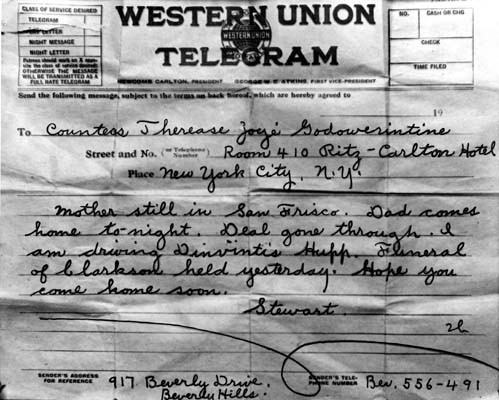 CLASS OF SERVICE DESIRED
TELEGRAM
DAY LETTER
NIGHT MESSAGE
NIGHT LETTER
Patrons should mark an X opposite the class of service desired; OTHERWISE THE MESSAGE WILL BE TRANSMITTED AS A FULL RATE TELEGRAM
WESTERN UNION
WESTERN UNION
TELEGRAM
NEWCOMB CARLTON, PRESIDENT GEORGE W. E. ATKINS, FIRST VICE-PRESIDENT
NO. CASH OR CHG
CHECK
TIME FILED
Send the following message, subject to the terms on back hereof, which are hereby agreed to
19
To Countess Therease Zoyé Godowerintine
Street and No. (or Telephone Number) Room 410 Ritz-Carlton Hotel
Place New York City, N.Y.
Mother still in San Frisco. Dad comes
home to-night. Deal gone through. I
am driving Dinvintis Hupp. Funeral
of Clarkson held yesterday. Hope you
come home soon.
Stewart.
SENDER'S ADDRESS FOR REFERENCE 917 Beverly Drive.
Beverly Hills.
SENDER'S TELEPHONE NUMBER Bev. 556-491